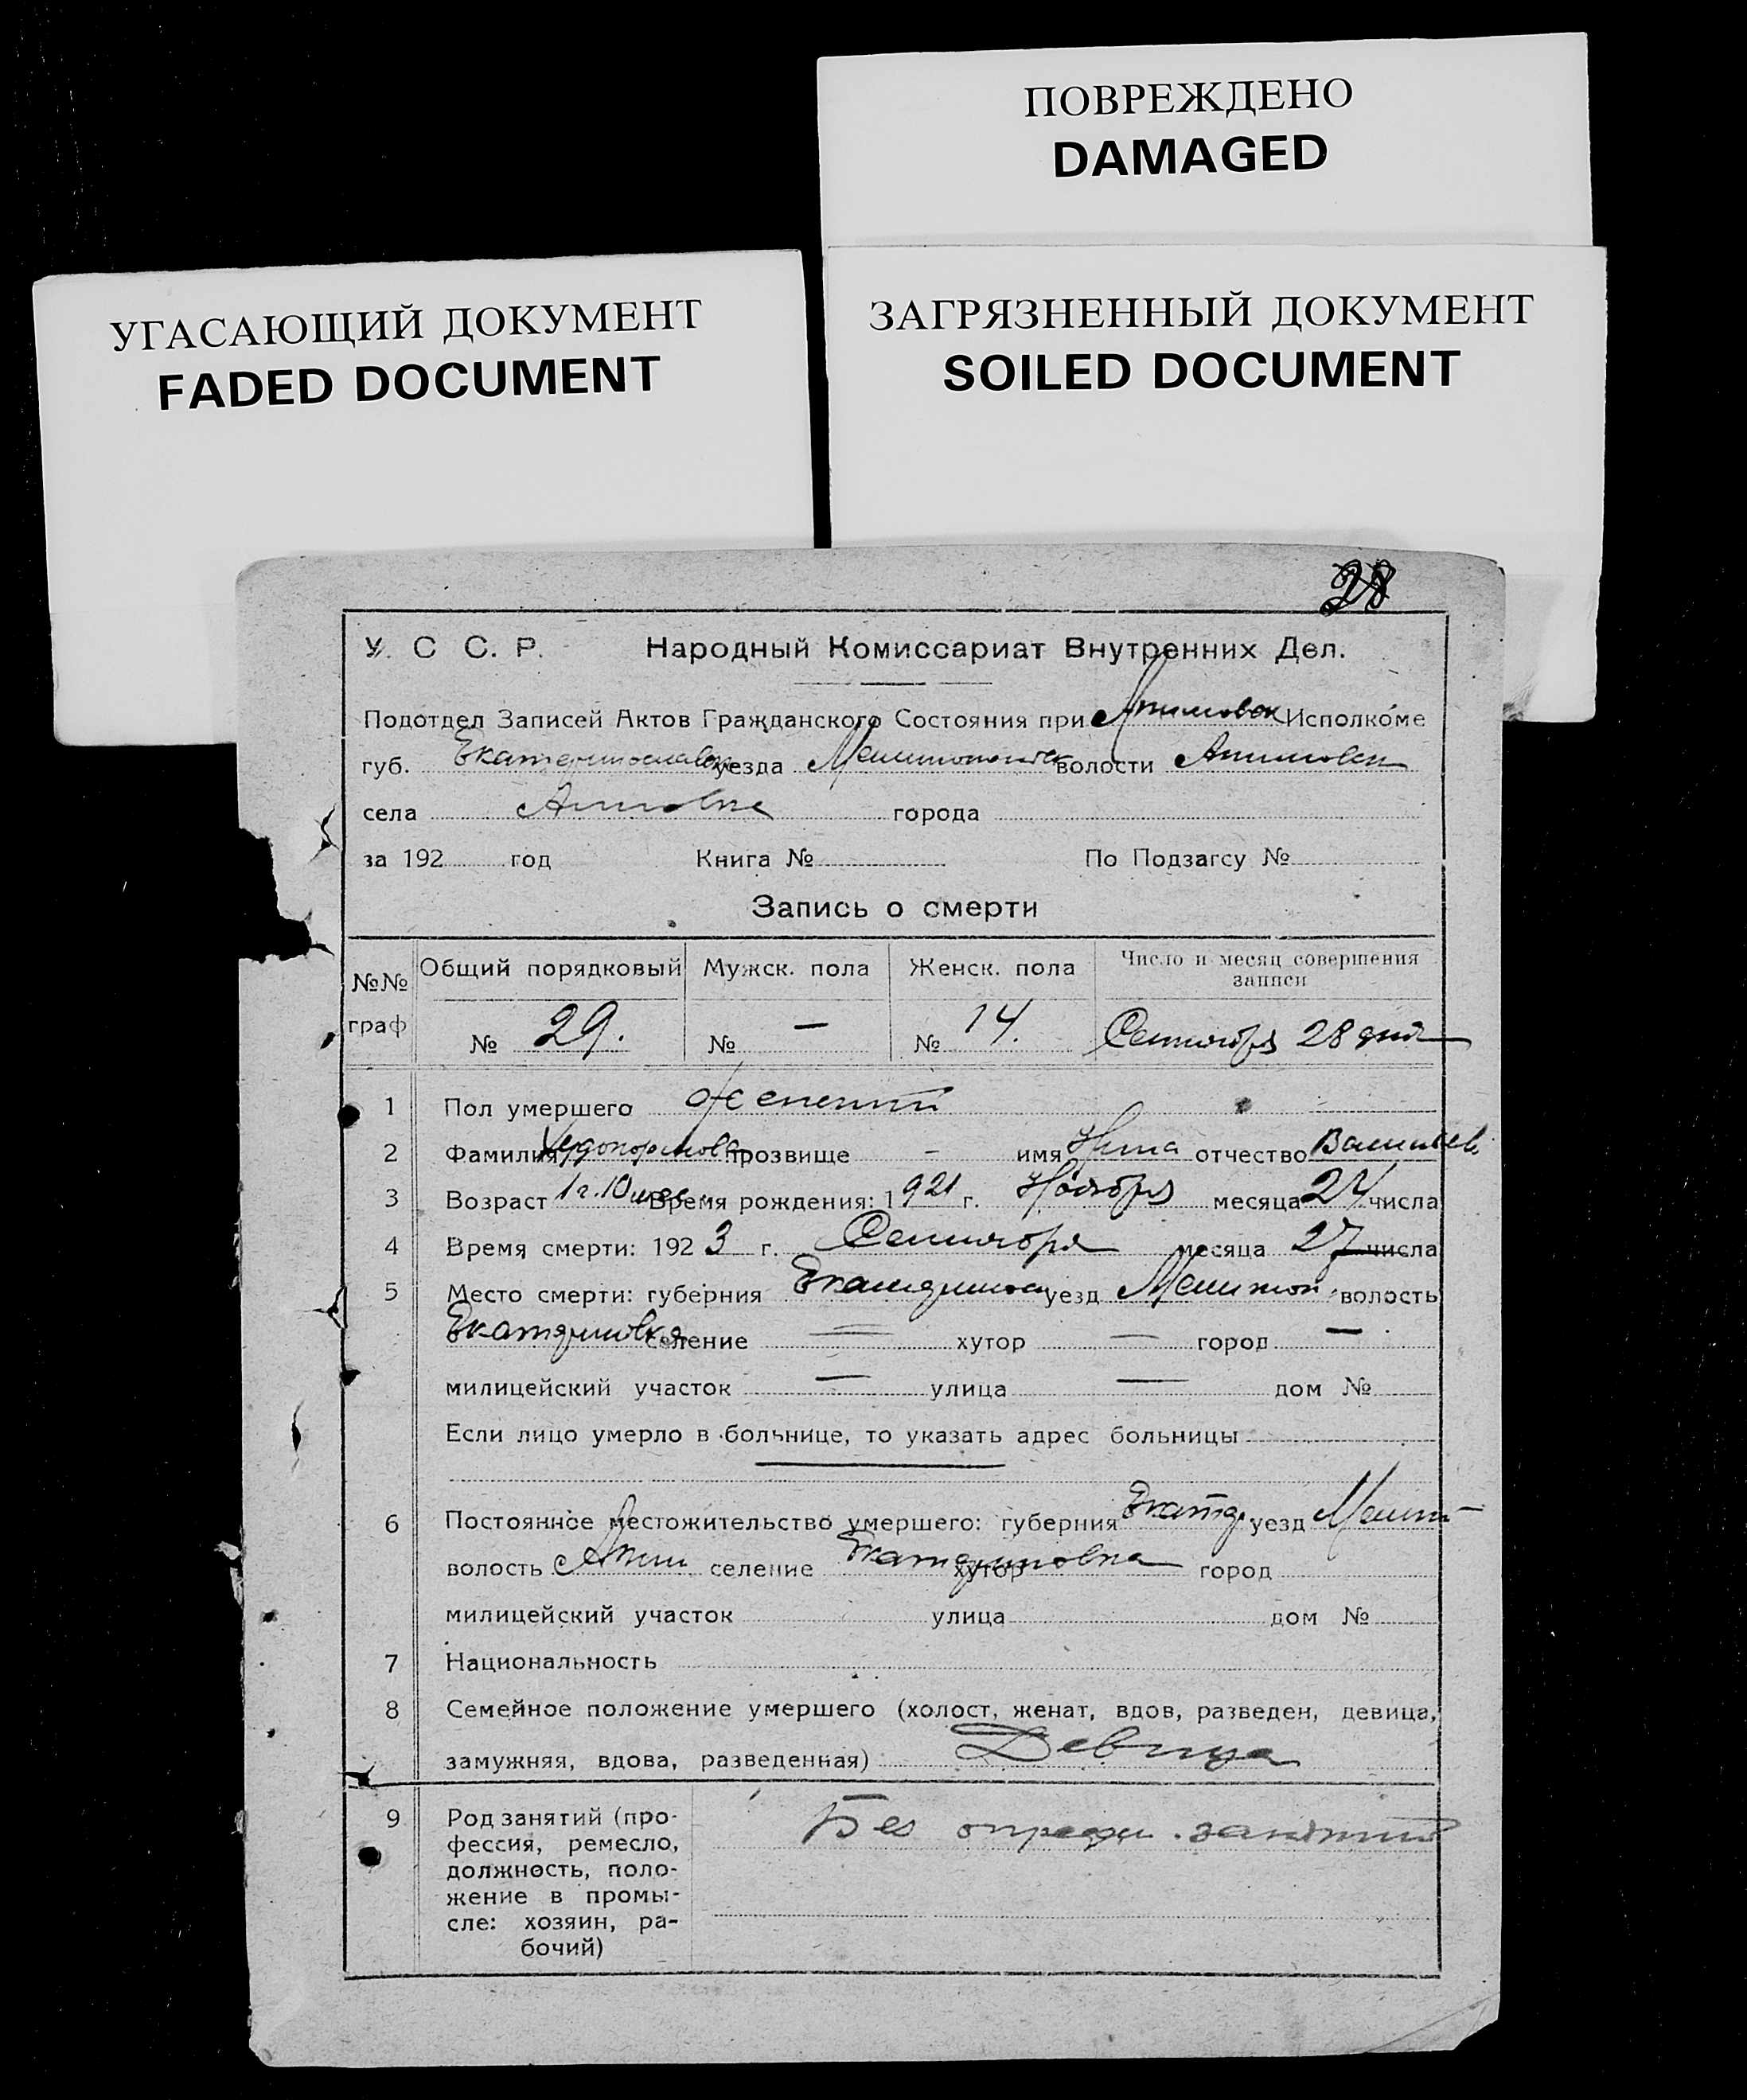 ПОВРЕЖДЕНО
DAMAGED
УГАСАЮЩИЙ ДОКУМЕНТ
FADED DOCUMENT
ЗАГРЯЗНЕННЫЙ ДОКУМЕНТ
SOILED DOCUMENT
28
У. С С. Р. Народный Комиссариат Внутренних Дел.
Подотдел Записей Актов Гражданского Состояния при Акимовск Исполкоме
губ. Екатеринославск уезда Мелитопольск волости Акимовск
села Акимовка города
за 192 год Книга № По Подзагсу №
Запись о смерти
№№ граф Общий порядковый Мужск. пола Женск. пола Число и месяц совершения записи
№ 29. № — № 14. Сентября 28 дня
1 Пол умершего Женский
2 Фамилия прозвище – имя Нина отчество Васильев
3 Возраст 1 г. 10 мес Время рождения: 1921 г. Ноября месяца 24 числа
4 Время смерти: 1923 г. Сентября месяца 27 числа
5 Место смерти: губерния Екатеринос уезд Мелитоп. волость
Екатериновка селение — хутор — город —
милицейский участок — улица — дом №
Если лицо умерло в больнице, то указать адрес больницы
6 Постоянное местожительство умершего: губерния Екатер уезд Мелит
волость Аким селение Екатериновка хутор город
милицейский участок улица дом №
7 Национальность
8 Семейное положение умершего (холост, женат, вдов, разведен, девица,
замужняя, вдова, разведенная) Девица
9 Род занятий (про- Без определ. занятий
фессия, ремесло,
должность, поло-
жение в промы-
сле: хозяин, ра-
бочий)